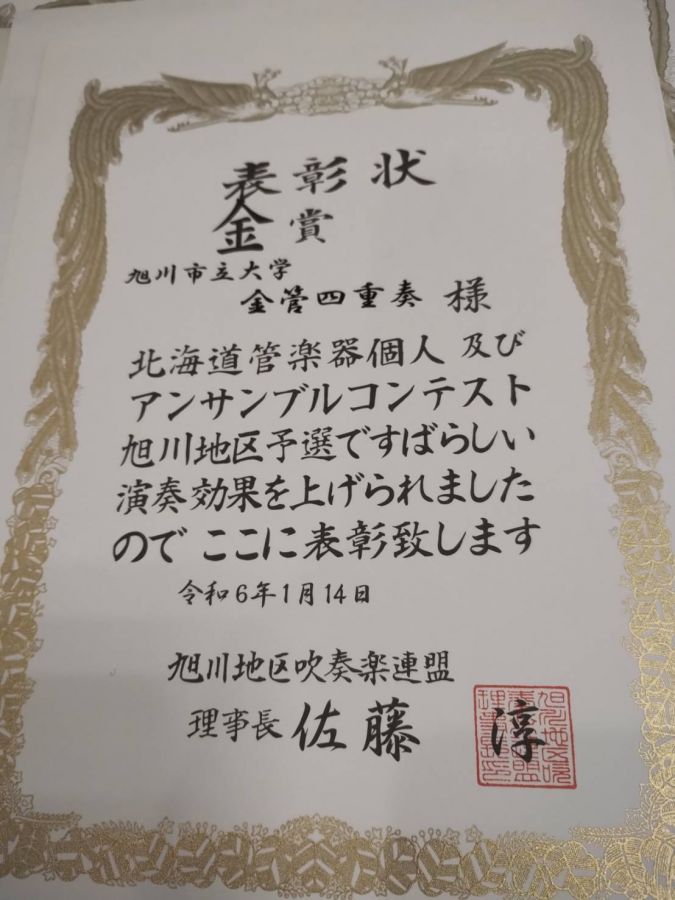 表彰状
金賞
旭川市立大学
金管四重奏 様
北海道管楽器個人 及び
アンサンブルコンテスト
旭川地区予選ですばらしい
演奏効果を上げられました
ので ここに表彰致します
令和6年1月14日
旭川地区吹奏楽連盟
理事長 佐藤 淳